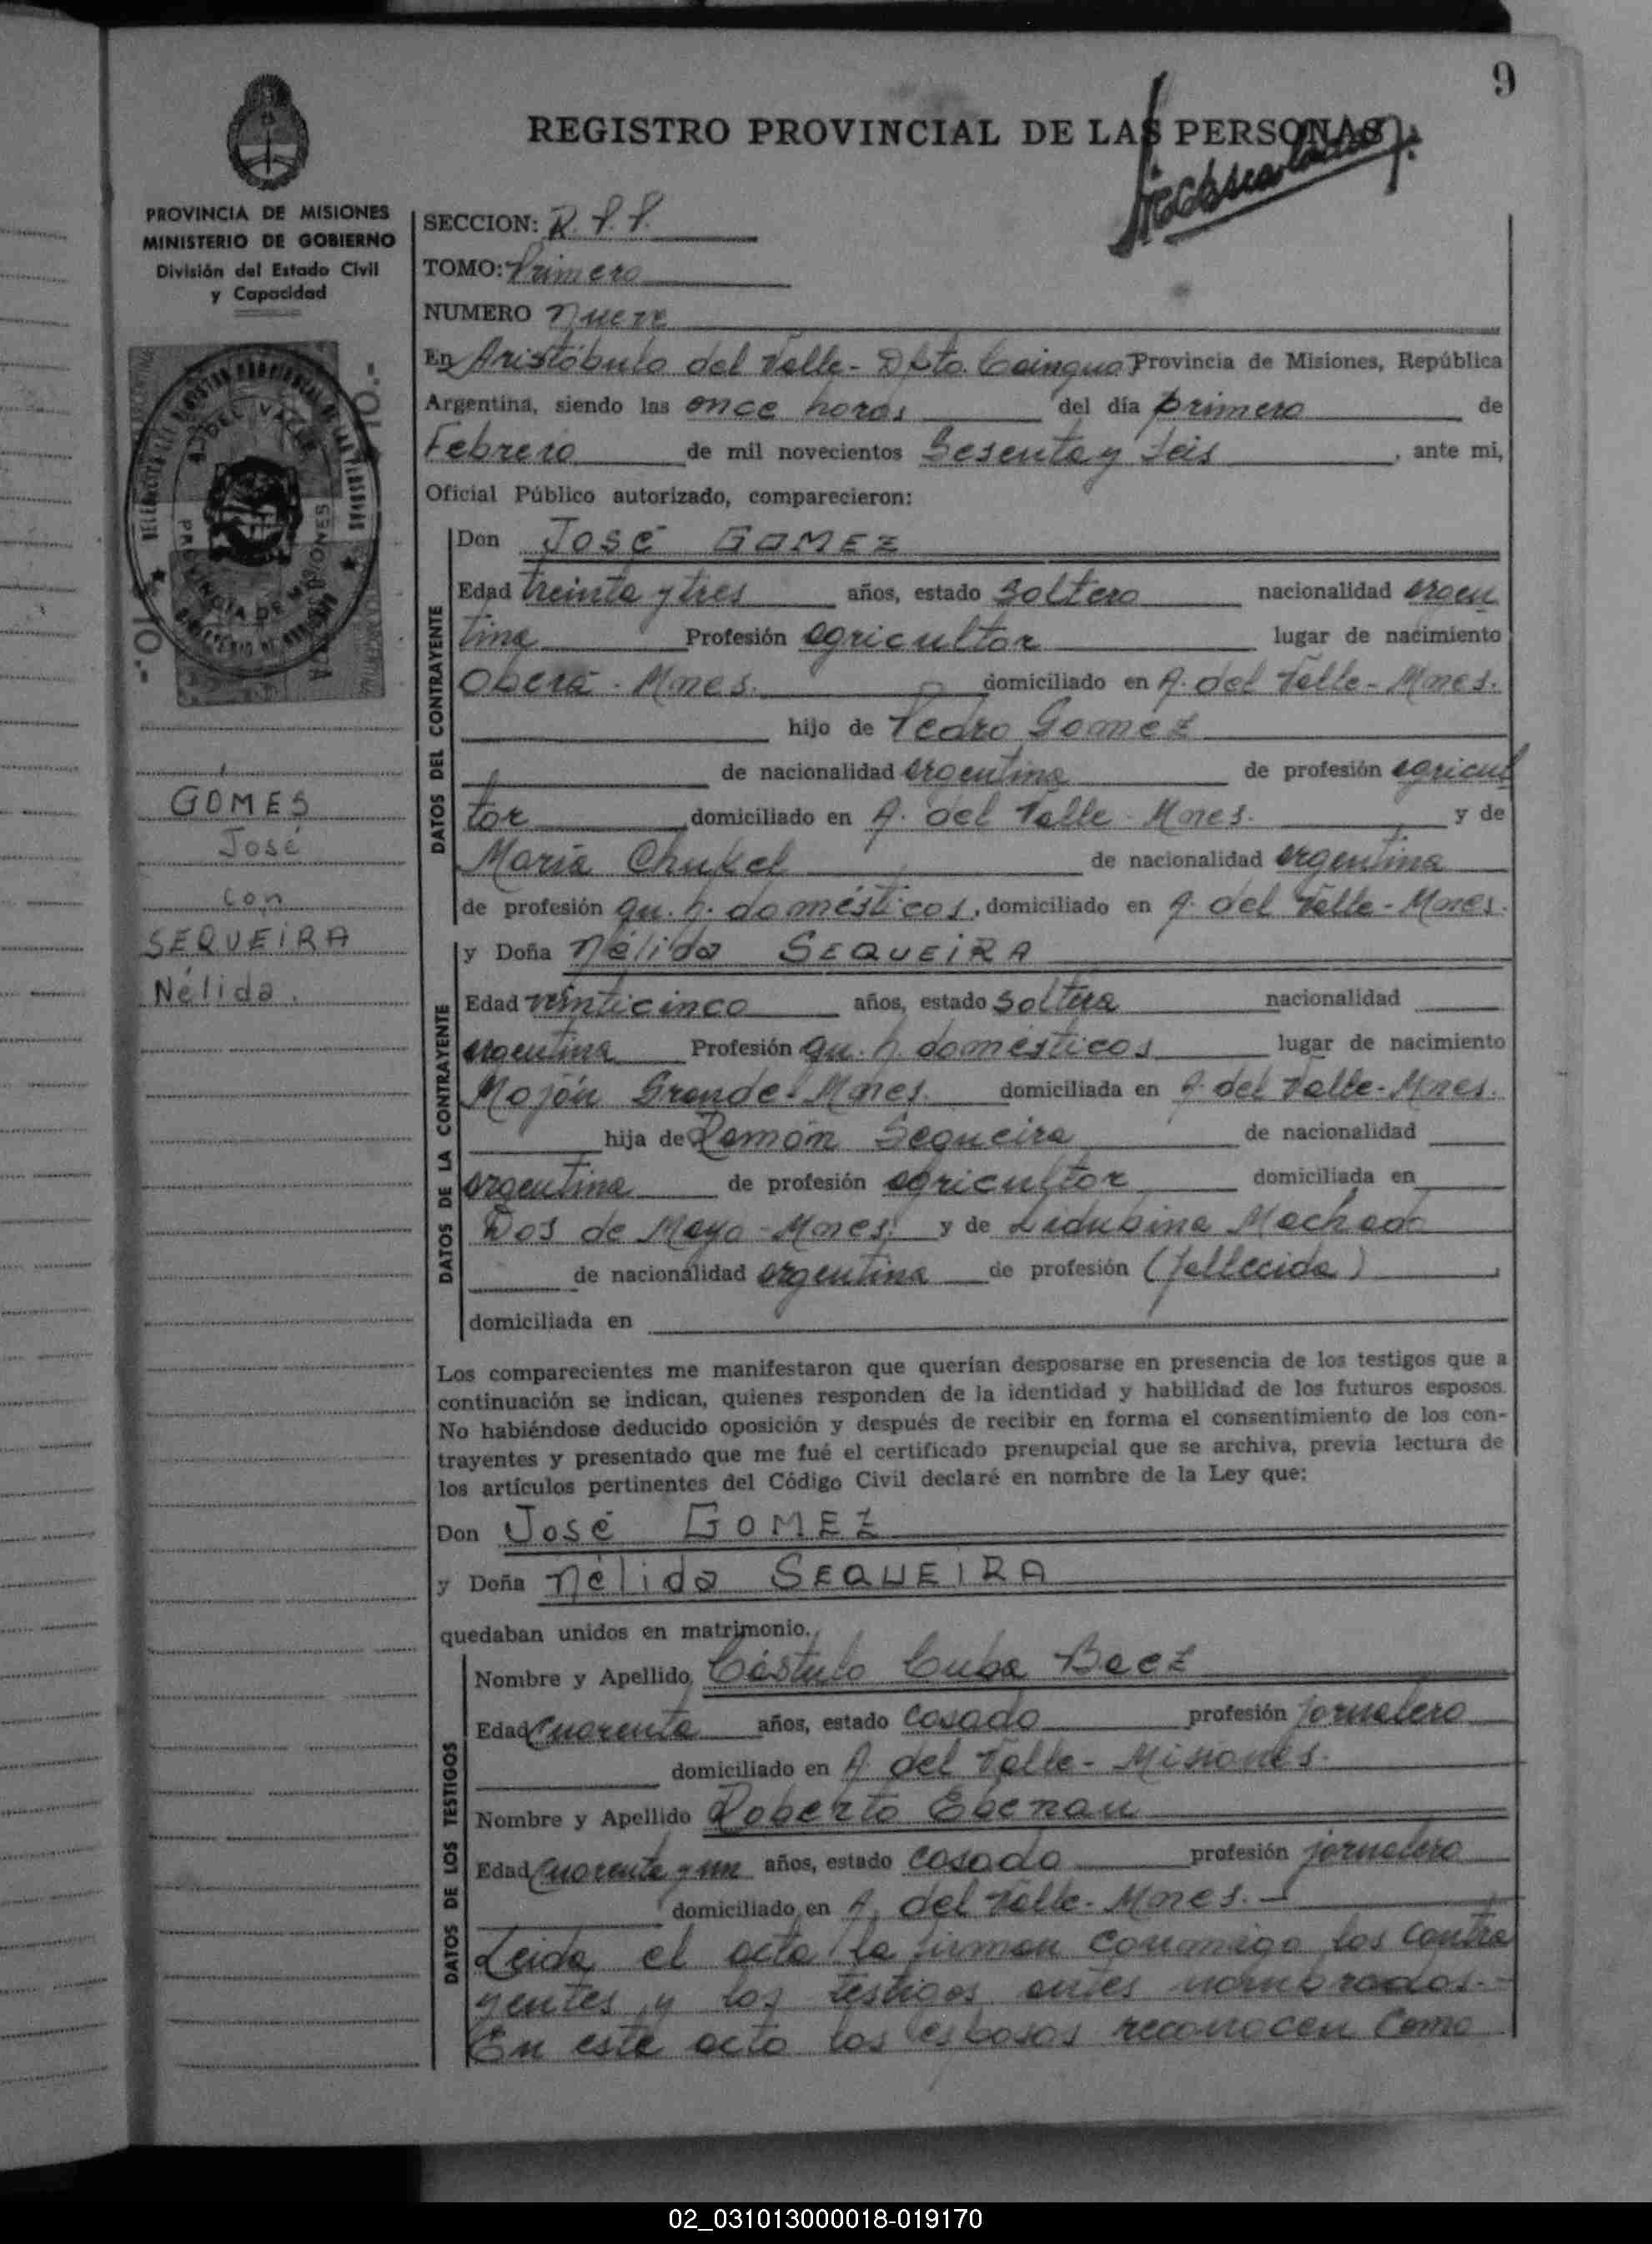 9
REGISTRO PROVINCIAL DE LAS PERSONAS
PROVINCIA DE MISIONES
MINISTERIO DE GOBIERNO
División del Estado Civil
y Capacidad
SECCION: R. P. P.
TOMO: Primero
NUMERO nueve
En Aristóbulo del Valle - Dpto. Cainguas Provincia de Misiones, República
Argentina, siendo las once horas del día primero de
Febrero de mil novecientos Sesenta y Seis, ante mi,
Oficial Público autorizado, comparecieron:
DATOS DEL CONTRAYENTE
Don José GOMEZ
Edad treinta y tres años, estado soltero nacionalidad argen
tina Profesión agricultor lugar de nacimiento
Oberá - Mnes. domiciliado en A. del Valle - Mnes.
hijo de Pedro Gomez
de nacionalidad argentina de profesión agricul
tor domiciliado en A. del Valle - Mnes. y de
María Chukel de nacionalidad argentina
de profesión qu. h. domésticos, domiciliado en A. del Valle - Mnes.
GOMES
José
con
SEQUEIRA
Nélida.
DATOS DE LA CONTRAYENTE
y Doña Nélida SEQUEIRA
Edad veinticinco años, estado soltera nacionalidad
argentina Profesión qu. h. domésticos lugar de nacimiento
Mojón Grande - Mnes. domiciliada en A. del Valle - Mnes.
hija de Ramón Sequeira de nacionalidad
argentina de profesión agricultor domiciliada en
Dos de Mayo - Mnes. y de Liduina Machado
de nacionalidad argentina de profesión (fallecida)
domiciliada en
Los comparecientes me manifestaron que querían desposarse en presencia de los testigos que a
continuación se indican, quienes responden de la identidad y habilidad de los futuros esposos.
No habiéndose deducido oposición y después de recibir en forma el consentimiento de los con-
trayentes y presentado que me fué el certificado prenupcial que se archiva, previa lectura de
los artículos pertinentes del Código Civil declaré en nombre de la Ley que:
Don José GOMEZ
y Doña Nélida SEQUEIRA
quedaban unidos en matrimonio.
DATOS DE LOS TESTIGOS
Nombre y Apellido Cástulo Cuba Baez
Edad Cuarenta años, estado casado profesión jornalero
domiciliado en A. del Valle - Misiones.
Nombre y Apellido Roberto
Edad Cuarenta y un años, estado casado profesión jornalero
domiciliado en A. del Valle - Mnes. -
Leida el acta la firman conmigo los contra
yentes y los testigos antes nombrados. -
En este acto los esposos reconocen como
02_031013000018-019170